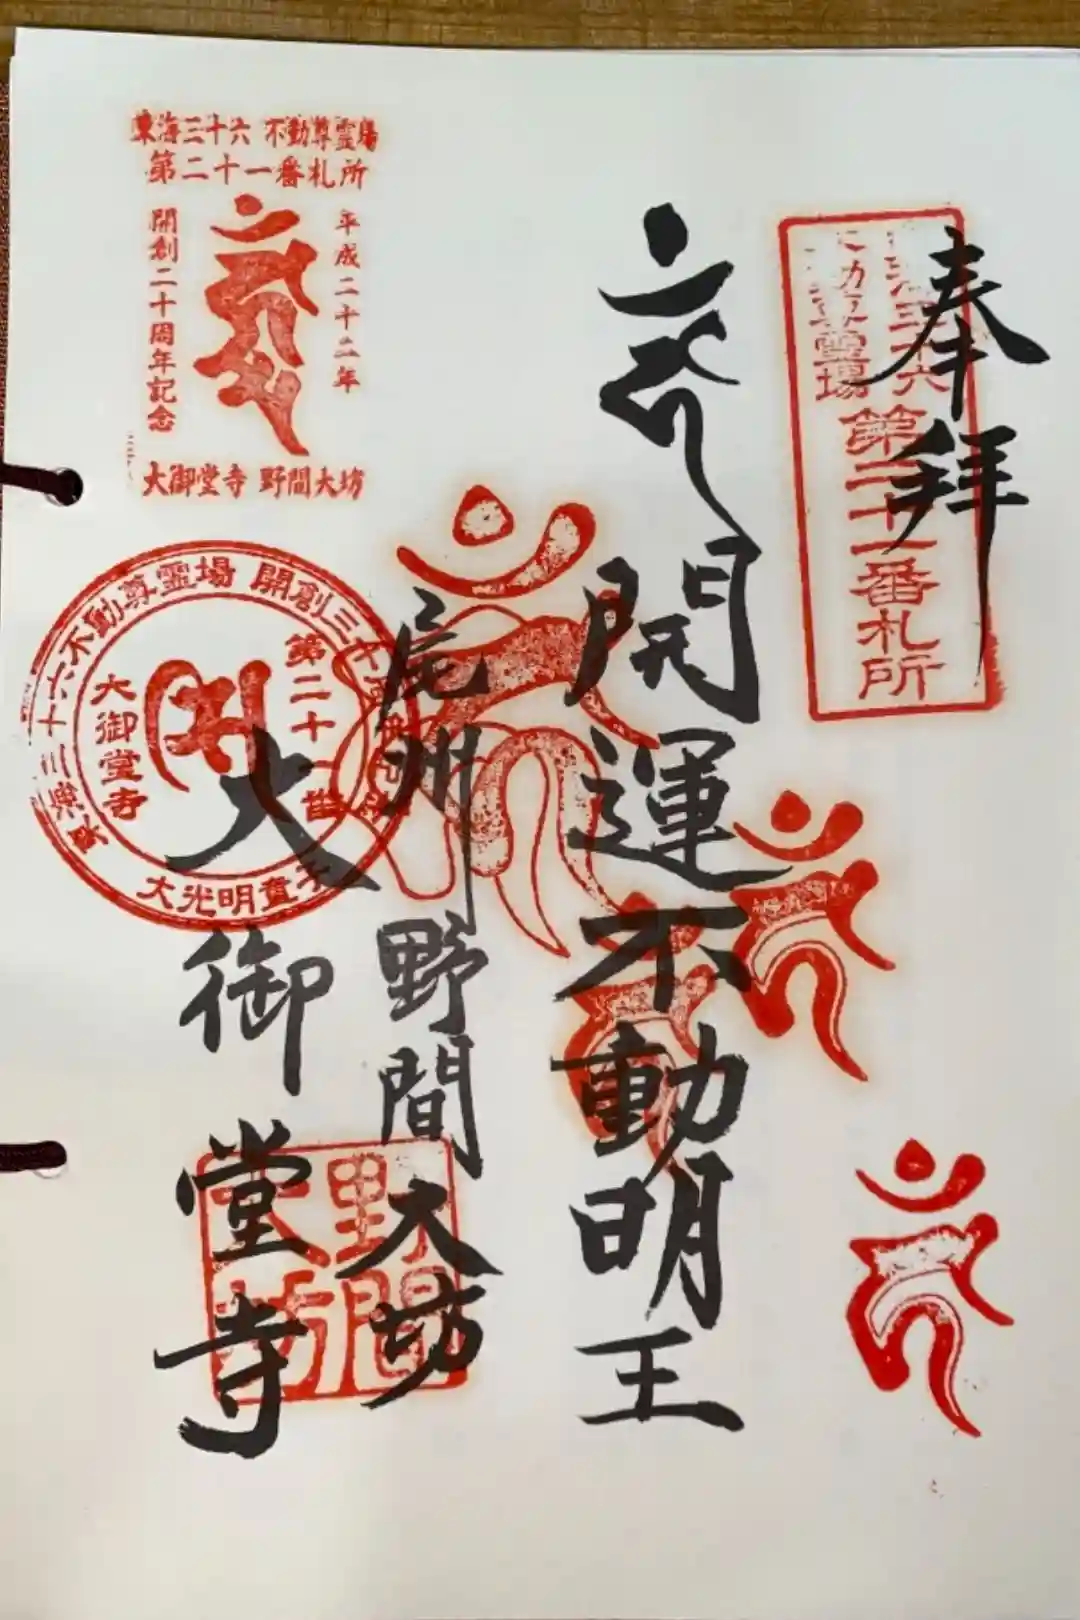 奉拝
三十六
霊場
第二十一番札所
開運不動明王
尾州野間大坊
大御堂寺
東海三十六不動尊霊場
第二十一番札所
平成二十二年
開創二十周年記念
大御堂寺 野間大坊
東海三十六不動尊霊場 開創三十周年記念
第二十一番
大御堂寺
大光明童子
野間
大坊